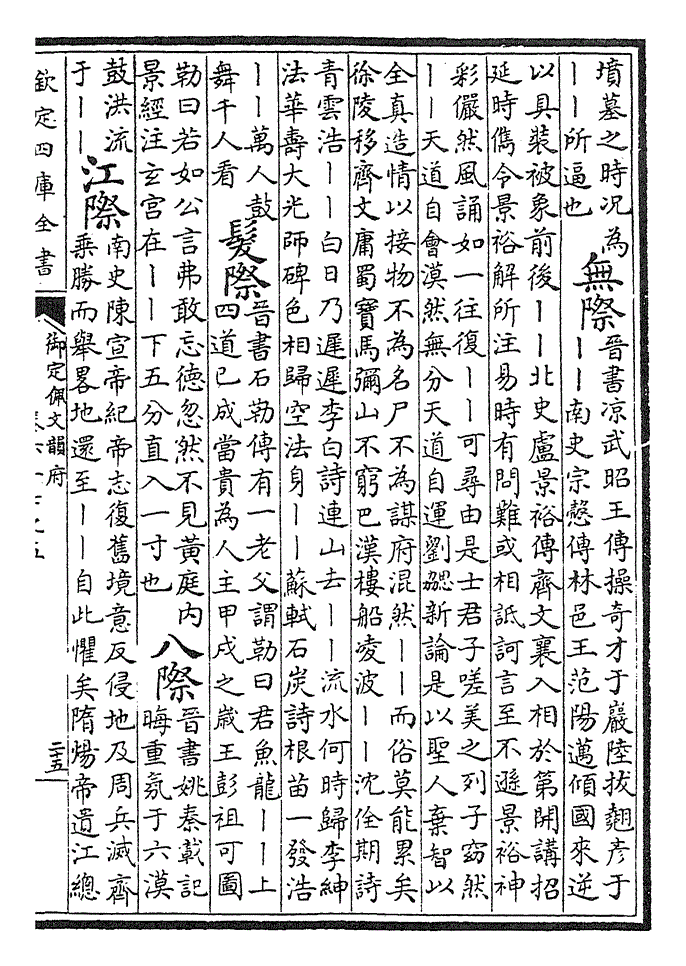 墳墓之時況為
丨丨所逼也
無際
晉書涼武昭王傳操奇才于巖陸拔翹彥于
丨丨南史宗慤傳林邑王范陽邁傾國來逆
以具裝被象前後丨丨北史盧景裕傳齊文襄入相於第開講招
延時儁令景裕解所注易時有問難或相詆訶言至不遜景裕神
彩儼然風誦如一往復丨丨可尋由是士君子嗟美之列子窈然
丨丨天道自會漠然無分天道自運劉勰新論是以聖人棄智以
全真造情以接物不為名尸不為謀府混然丨丨而俗莫能累矣
徐陵移齊文庸蜀寶馬彌山不窮巴漢樓船凌波丨丨沈佺期詩
青雲浩丨丨白日乃遲遲李白詩連山去丨丨流水何時歸李紳
法華壽大光師碑色相歸空法身丨丨蘇軾石炭詩根苗一發浩
丨丨萬人鼓
舞千人看
髮際
晉書石勒傳有一老父謂勒曰君魚龍丨丨上
四道已成當貴為人主甲戌之歲王彭祖可圖
勒曰若如公言弗敢忘德忽然不見黃庭內
景經注玄宮在丨丨下五分直入一寸也
八際
晉書姚秦載記
晦重氛于六漠
鼓洪流
于丨丨
江際
南史陳宣帝紀帝志復舊境意反侵地及周兵滅齊
乘勝而舉畧地還至丨丨自此懼矣隋煬帝遺江總
欽定四庫全書
御定佩文韻府
二十五